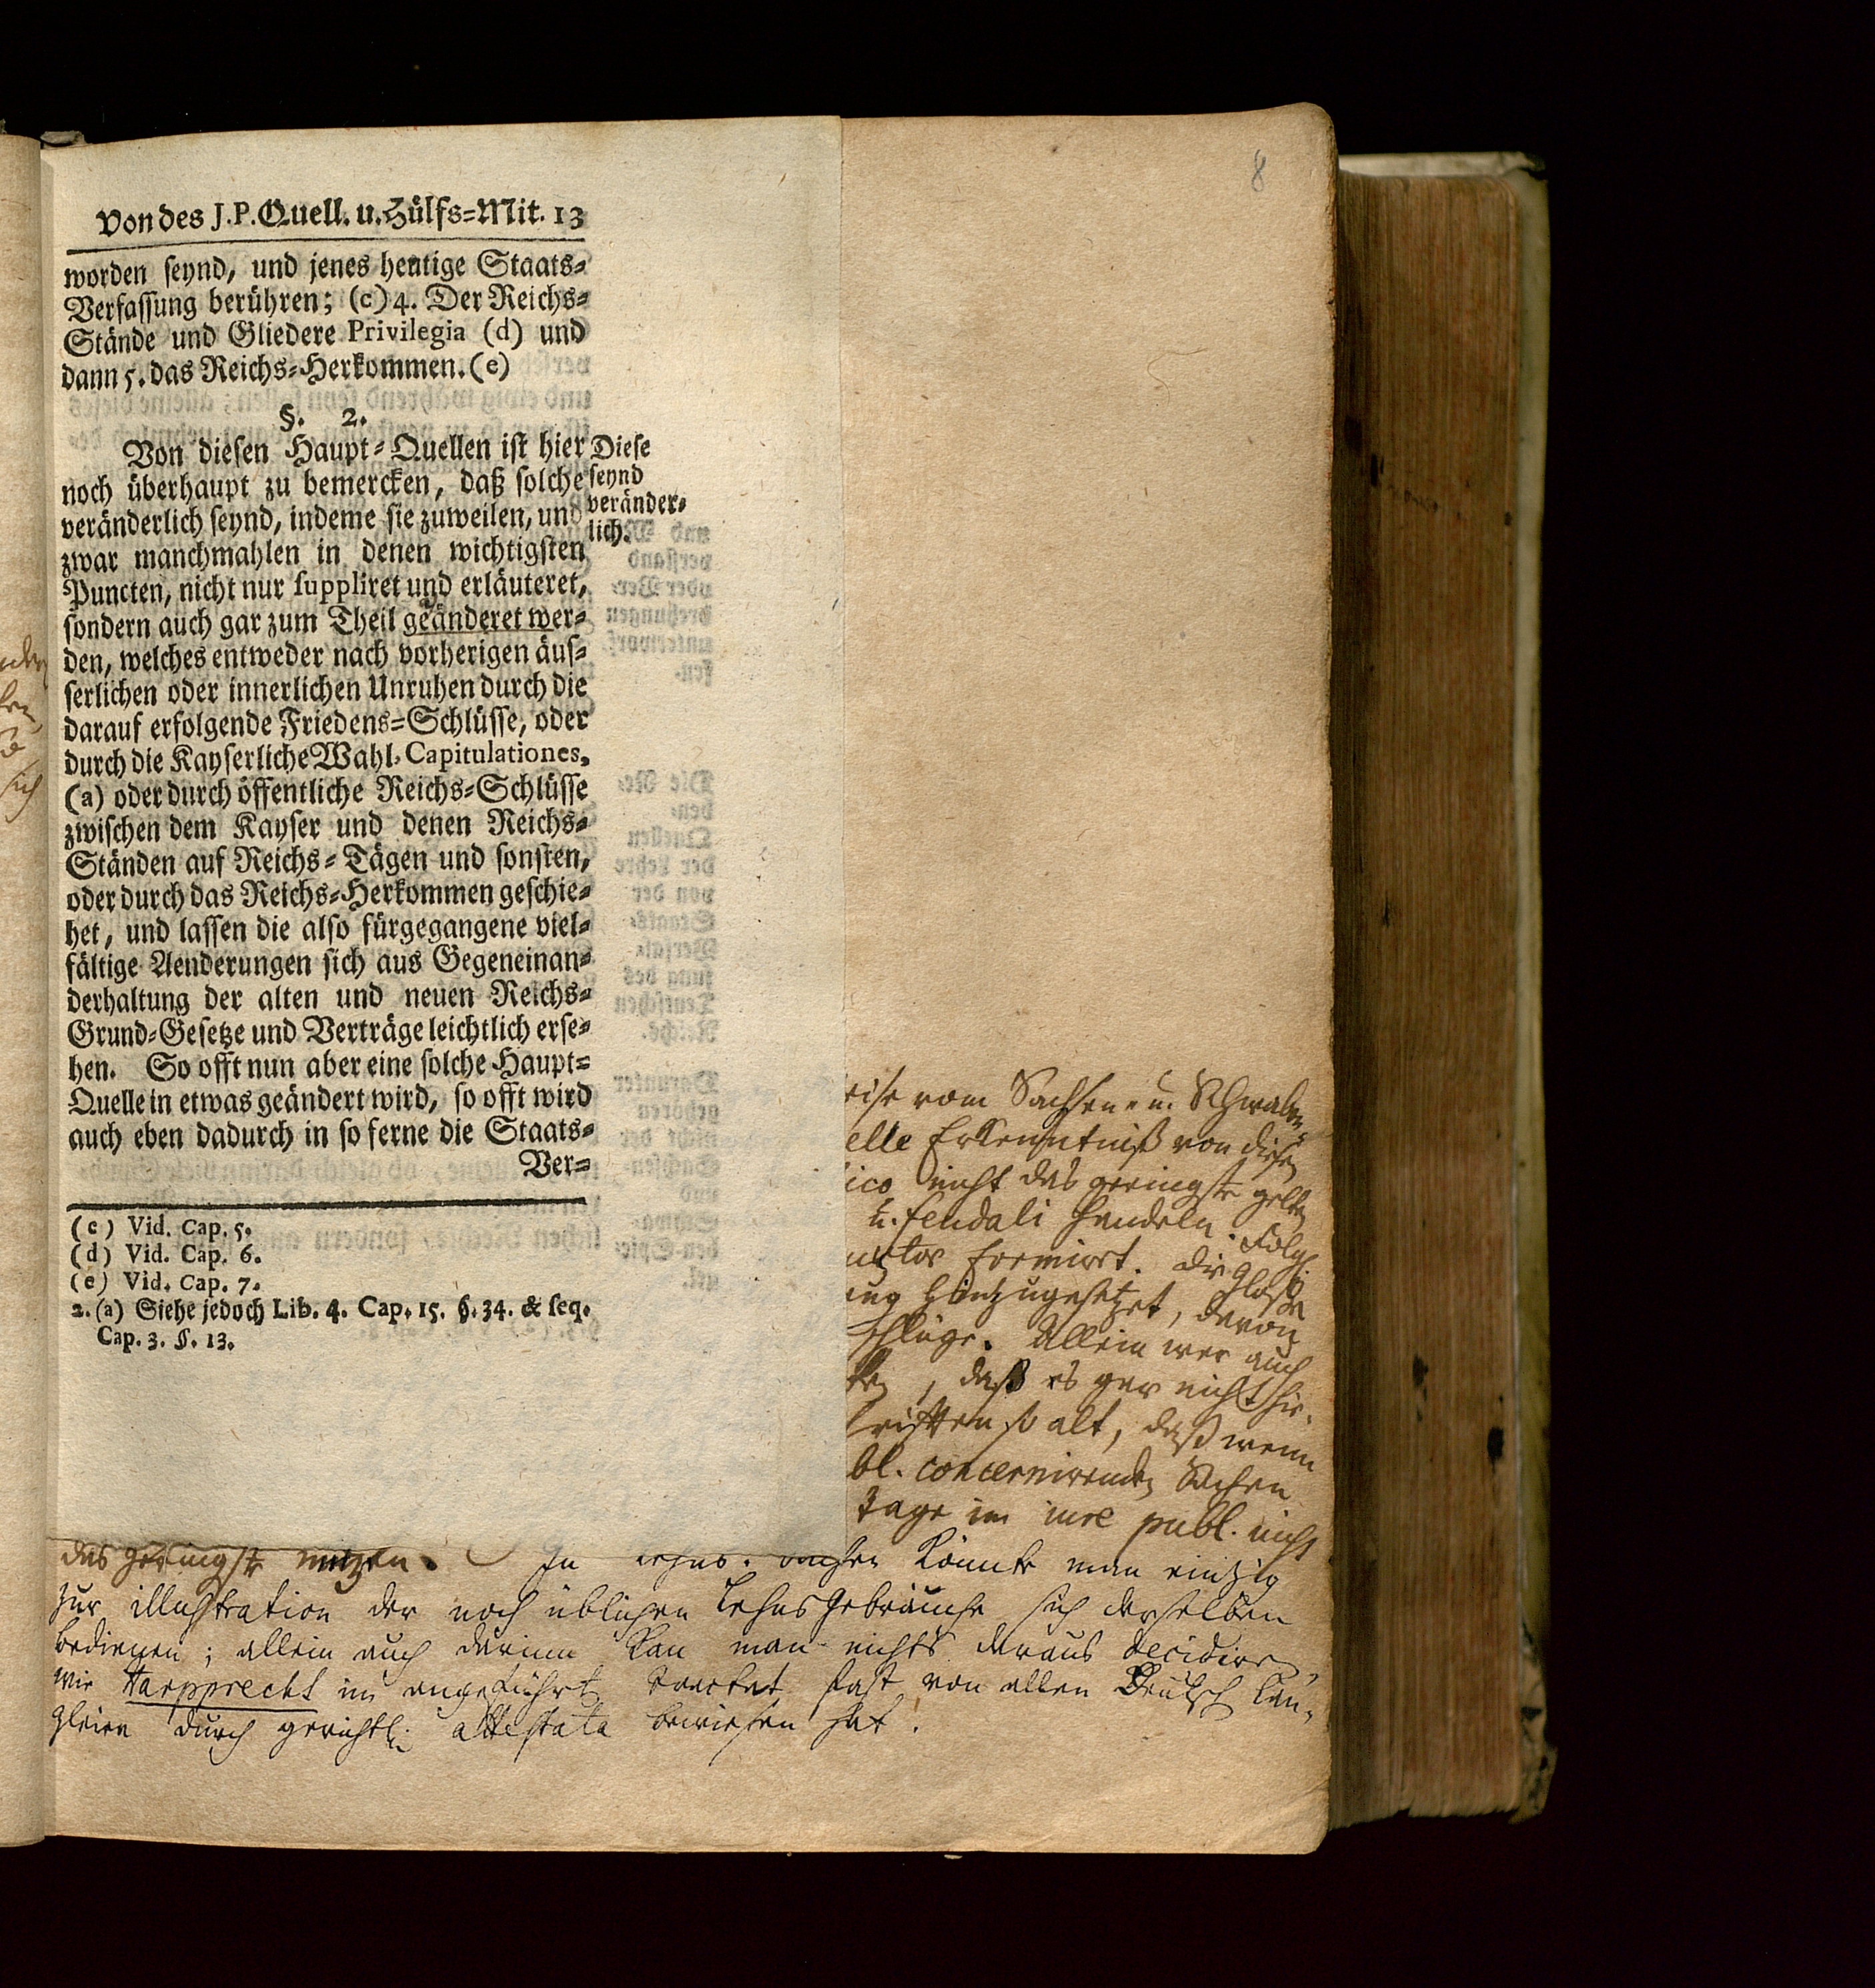 8
Von des J.P. Quell. u. Hülfs=Mit. 13
worden seynd, und jenes heutige Staats=
Verfassung berühren; (c) 4. Der Reichs=
Stände und Gliedere Privilegia (d) und
dann 5. das Reichs=Herkommen. (e)
§. 2.
Von diesen Haupt=Quellen ist hier
noch überhaupt zu bemercken, daß solche
veränderlich seynd, indeme sie zuweilen, und
zwar manchmahlen in denen wichtigsten
Puncten, nicht nur suppliret und erläuteret,
sondern auch gar zum Theil geänderet wer=
den, welches entweder nach vorherigen äus=
serlichen oder innerlichen Unruhen durch die
darauf erfolgende Friedens=Schlüsse, oder
durch die Kayserliche Wahl-Capitulationes,
(a) oder durch öffentliche Reichs=Schlüsse
zwischen dem Kayser und denen Reichs=
Ständen auf Reichs=Tägen und sonsten,
oder durch das Reichs=Herkommen geschie=
het, und lassen die also fürgegangene viel=
fältige Aenderungen sich aus Gegeneinan=
derhaltung der alten und neuen Reichs=
Grund=Gesetze und Verträge leichtlich erse=
hen. So offt nun aber eine solche Haupt=
Quelle in etwas geändert wird, so offt wird
auch eben dadurch in so ferne die Staats=
Ver=
Diese
seynd
veränder=
lich.
(c) Vid. Cap. 5.
(d) Vid. Cap. 6.
(e) Vid. Cap. 7.
2. (a) Siehe jedoch Lib. 4. Cap. 15. §. 34. & seq.
Cap. 3. §. 13.
vom Sachsen- u. Schwaben-
elle Erkenntniß von diesen
ico nicht das geringste gelten
u. feudali handeln.
formirt. die Glosse
hinzugesetzet, davon
Allein wer auch
, daß es gar nicht hie-
so alt, daß wenn
bl. concernirenden Sachen
tage im iure publ. nicht
das geringste nuzen. In Lehns-Sachen könnte man einzig
zur illustration der noch üblichen Lehns Gebräuche sich derselben
bedienen; allein auch darinn kan man nichts daraus decidiren,
wie Harpprecht im angeführten Tractat fast von allen Deutschen Can-
zleien durch gerichtl. attestata bewiesen hat.